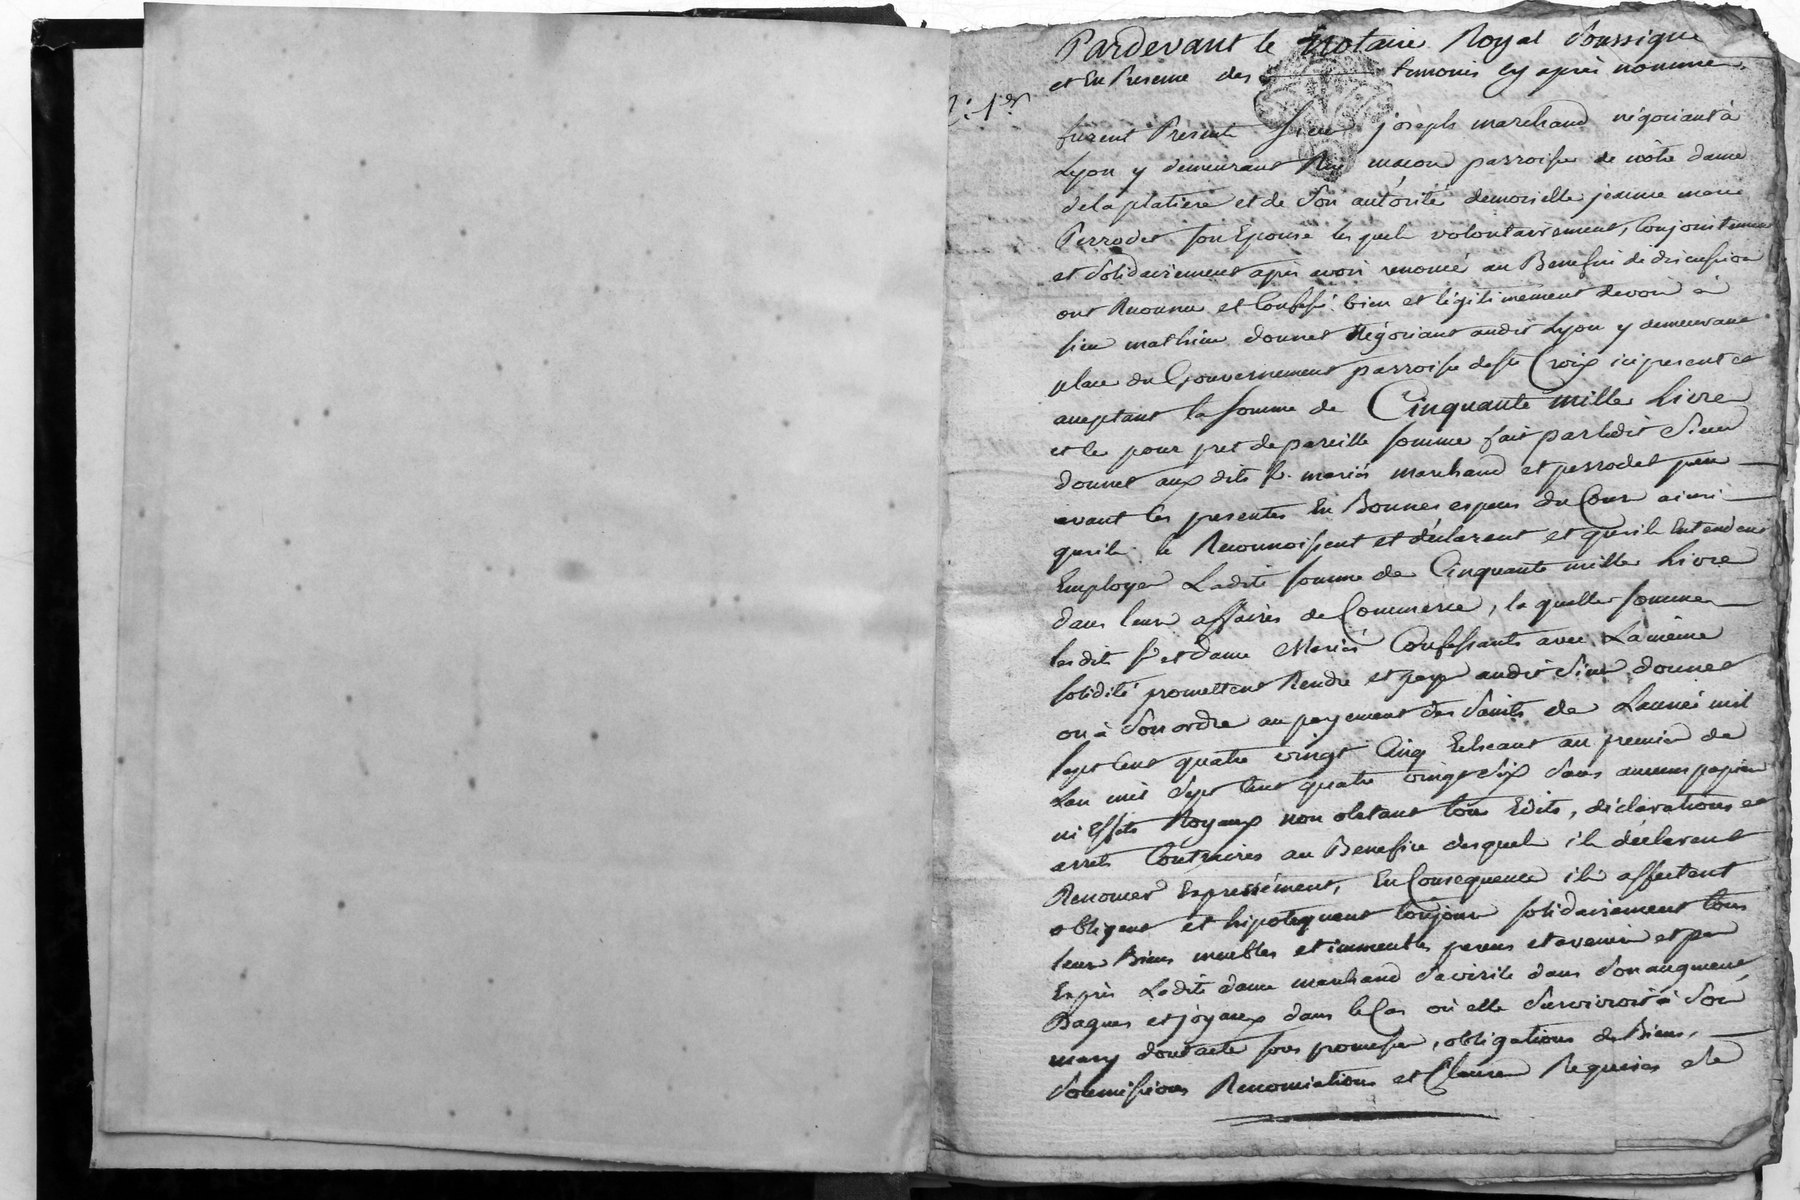 Pardevant le Notaire Royal soussigné
et En Presence des temoins cy après nommés.
furent Presents sieur joseph marchand négociant à
Lyon y demeurant Rue paroisse de nôtre dame
de la platiere et de son autorité demoiselle jeanne marie
Perrodet son Epouse lesquels volontairement, Conjointement
et solidairement après avoir renoncé au Benefice de discussion
ont Reconnu et Confessé bien et légitimement devoir à
sieur mathieu donnet Négociant audit Lyon y demeurant
place du Gouvernement parroisse de Ste Croix ici present et
acceptant la somme de Cinquante mille Livres
et ce pour pret de pareille somme fait par ledit Sieur
donnet aux dits Sr. mariés marchand et perrodet peu
avant les presentes En Bonnes especes du Cour ainsi
qu'ils le Reconnoissent et déclarent et qu'ils Entendent
Employer Ladite somme de Cinquante mille Livres
dans leurs affaires de Commerce, la quelle somme
lesdits Sr et dame Mariés Confessants avec La même
solidité promettent Rendre et payer audit Sieur donnet
ou à son ordre au payement des Saints de L'année mil
sept Cent quatre vingt Cinq Echeant au premier de
L'an mil sept Cent quatre vingt six sans aucuns papiers
ni Effets Royaux non obstant tous Edits, déclarations et
arrets Contraires au Benefice desquels ils déclarent
Renoncer Expressément, En Consequence ils affectent
obligent et hipotequent toujours solidairement tous
leurs Biens meubles et immeubles presens et avenir et par
Exprès Ladite dame marchand sa virile dans son augment
Bagues et joyaux dans le Cas où elle survivroit à son
mary dont acte sous promesses, obligations de Biens,
soumissions Renonciations et Clauses Requises etc